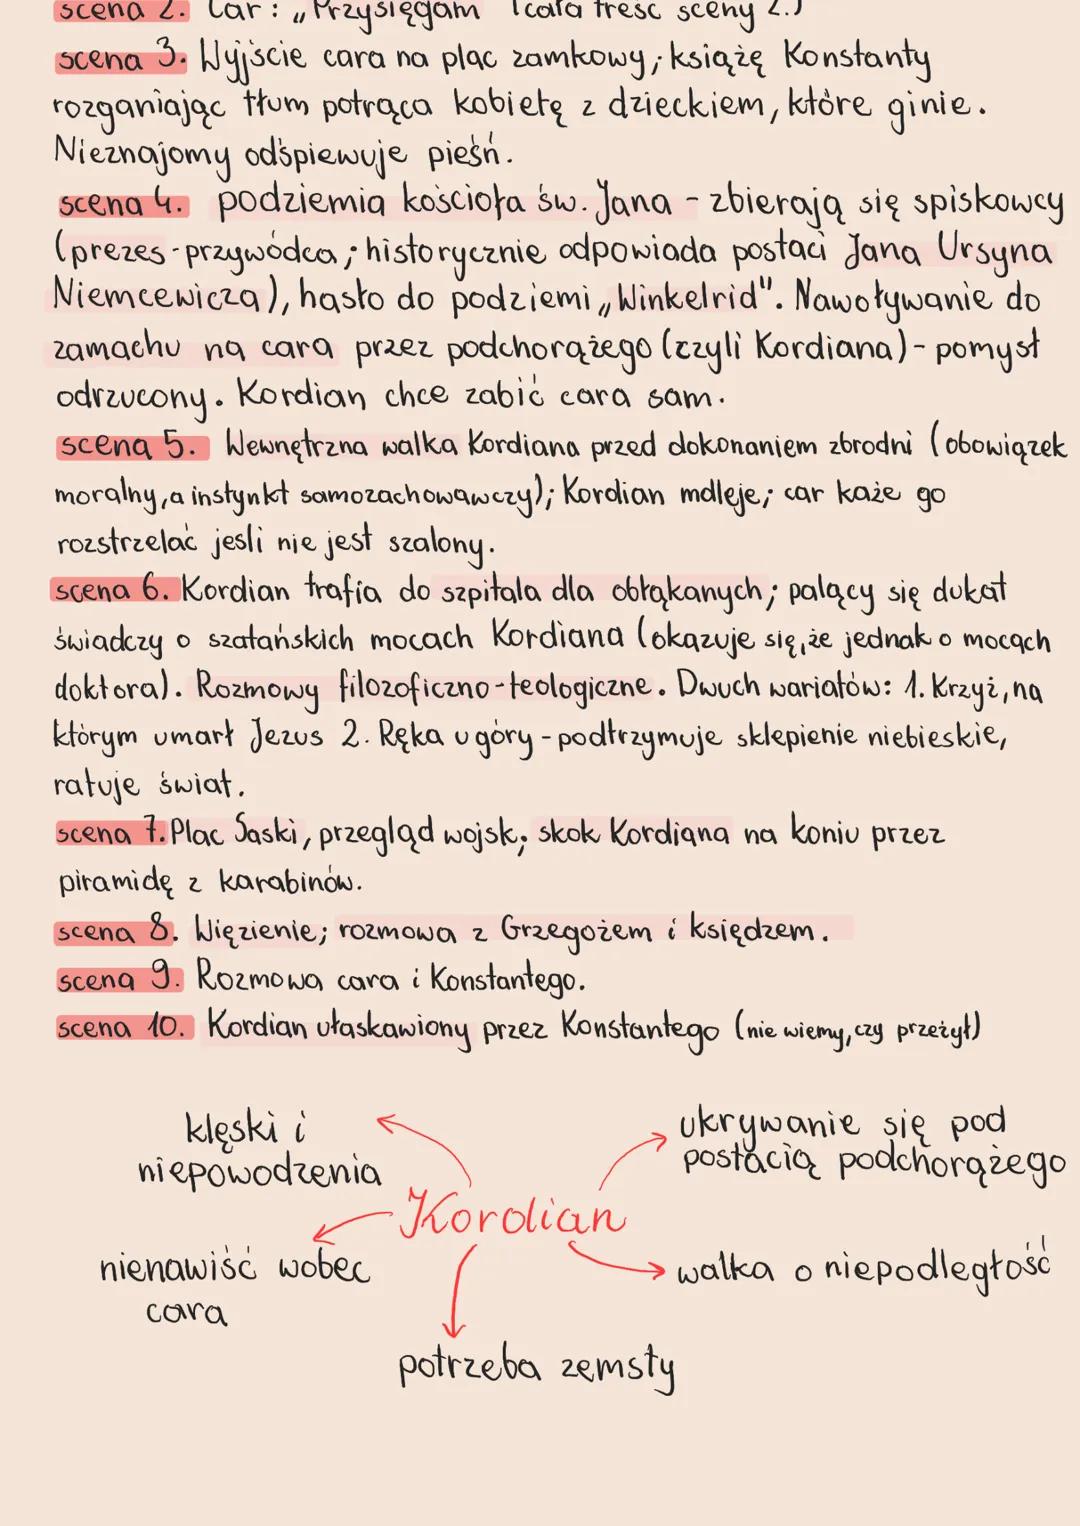 scena 2. Car: „Przysięgam" (cała treść sceny 2.)
scena 3. Wyjście cara na plac zamkowy; książę Konstanty
rozganiając tłum potrąca kobietę z dzieckiem, które ginie.
Nieznajomy odśpiewuje pieśń.
scena 4. podziemia kościoła św. Jana - zbierają się spiskowcy
(prezes - przywódca; historycznie odpowiada postaci Jana Ursyna
Niemcewicza), hasło do podziemi „Winkelrid". Nawoływanie do
zamachu na cara przez podchorążego (czyli Kordiana) - pomysł
odrzucony. Kordian chce zabić cara sam.
scena 5. Wewnętrzna walka Kordiana przed dokonaniem zbrodni (obowiązek
moralny, a instynkt samozachowawczy); Kordian mdleje; car każe go
rozstrzelać jesli nie jest szalony.
scena 6. Kordian trafia do szpitala dla obłąkanych; palący się dukat
świadczy o szatańskich mocach Kordiana (okazuje się, że jednak o mocach
doktora). Rozmowy filozoficzno-teologiczne. Dwuch wariatów: 1. Krzyż, na
którym umarł Jezus 2. Ręka u góry - podtrzymuje sklepienie niebieskie,
ratuje świat.
scena 7. Plac Saski, przegląd wojsk; skok Kordiana na koniu przez
piramidę z karabinów.
scena 8. Więzienie; rozmowa z Grzegożem i księdzem.
scena 9. Rozmowa cara i Konstantego.
scena 10. Kordian ułaskawiony przez Konstantego (nie wiemy, czy przeżył)
klęski i
niepowodzenia
ukrywanie się pod
postacią podchorążego
Kordian
nienawiść wobec
cara
walka o niepodległość
potrzeba zemsty